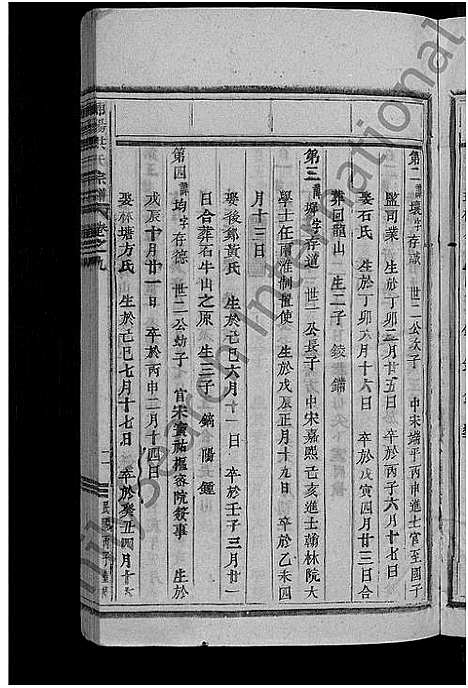 第二諱壎字存誠 世二公次子 中宋端平丙申進士官至國子
監司業 生於丁卯三月廿五日 卒於丙子六月十七日
娶石氏 生於丁卯六月十六日 卒於戊寅四月廿三日合
葬回龍山 生二子 錂 鏞
第三諱墀字存道 世三公長子 中宋嘉熙己亥進士翰林院大
學士任兩淮制置使 生於戊辰正月十九日 卒於乙未四
月十三日
娶後鄉黃氏 生於己巳六月十一日 卒於壬子三月廿一
日合葬石牛山之原 生三子 鏑 鍚 鍾
第四諱均字存德 世二公幼子 官宋寶祐樞密院叙事 生於
戊辰十月廿一日 卒於丙申二月十四日
娶林塘方氏 生於己巳七月十七日 卒於癸丑四月廿六
陽洪氏宗譜 卷之九
二
民國丙子重修